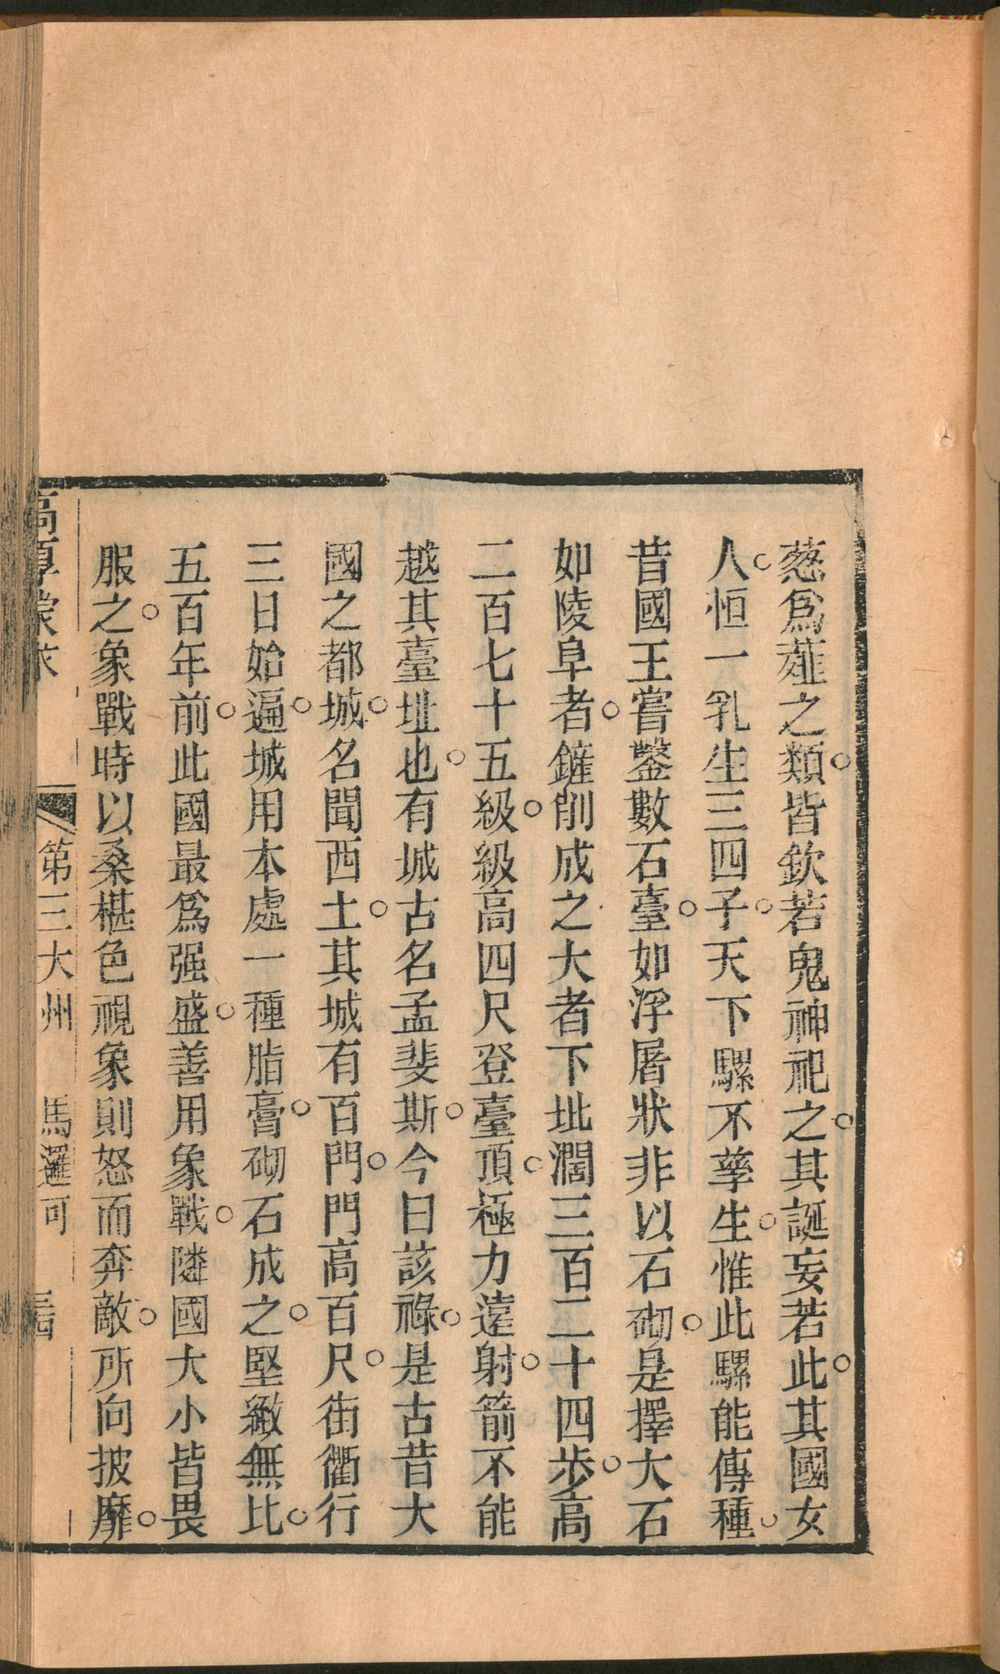 葱爲薤之類。皆欽若鬼神祀之。其誕妄若此。其國女
人。恒一乳生三四子。天下騾不孳生。惟此騾能傳種。
昔國王嘗鑿數石臺。如浮屠狀非以石砌。是擇大石
如陵阜者。鏟削成之大者下址濶三百二十四步。高
二百七十五級。級高四尺登臺頂。極力遠射。箭不能
越其臺址也。有城古名孟斐斯。今曰該祿。是古昔大
國之都城。名聞西土。其城有百門。門高百尺。街衢行
三日始遍。城用本處一種脂膏。砌石成之。堅緻無比。
五百年前。此國最爲强盛。善用象戰。隣國大小皆畏
服之。象戰時以桑椹色視象則怒而奔敵。所向披靡。
高厚蒙求
第三大州
馬邏可